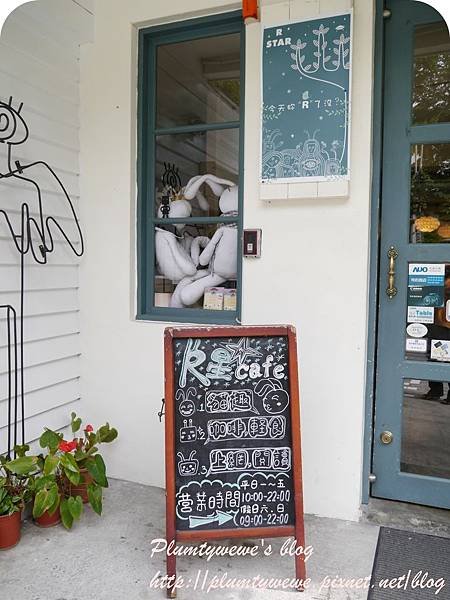 R
STAR
今天你"R"了沒?
R星cafe
1. 貓趣
2. 咖啡,輕食
3. 上網,閱讀
營業時間
平日 一~五
10:00-22:00
假日 六.日
09:00-22:00
AUO
iTable
Plumtywewe's blog
http://plumtywewe.pixnet.net/blog